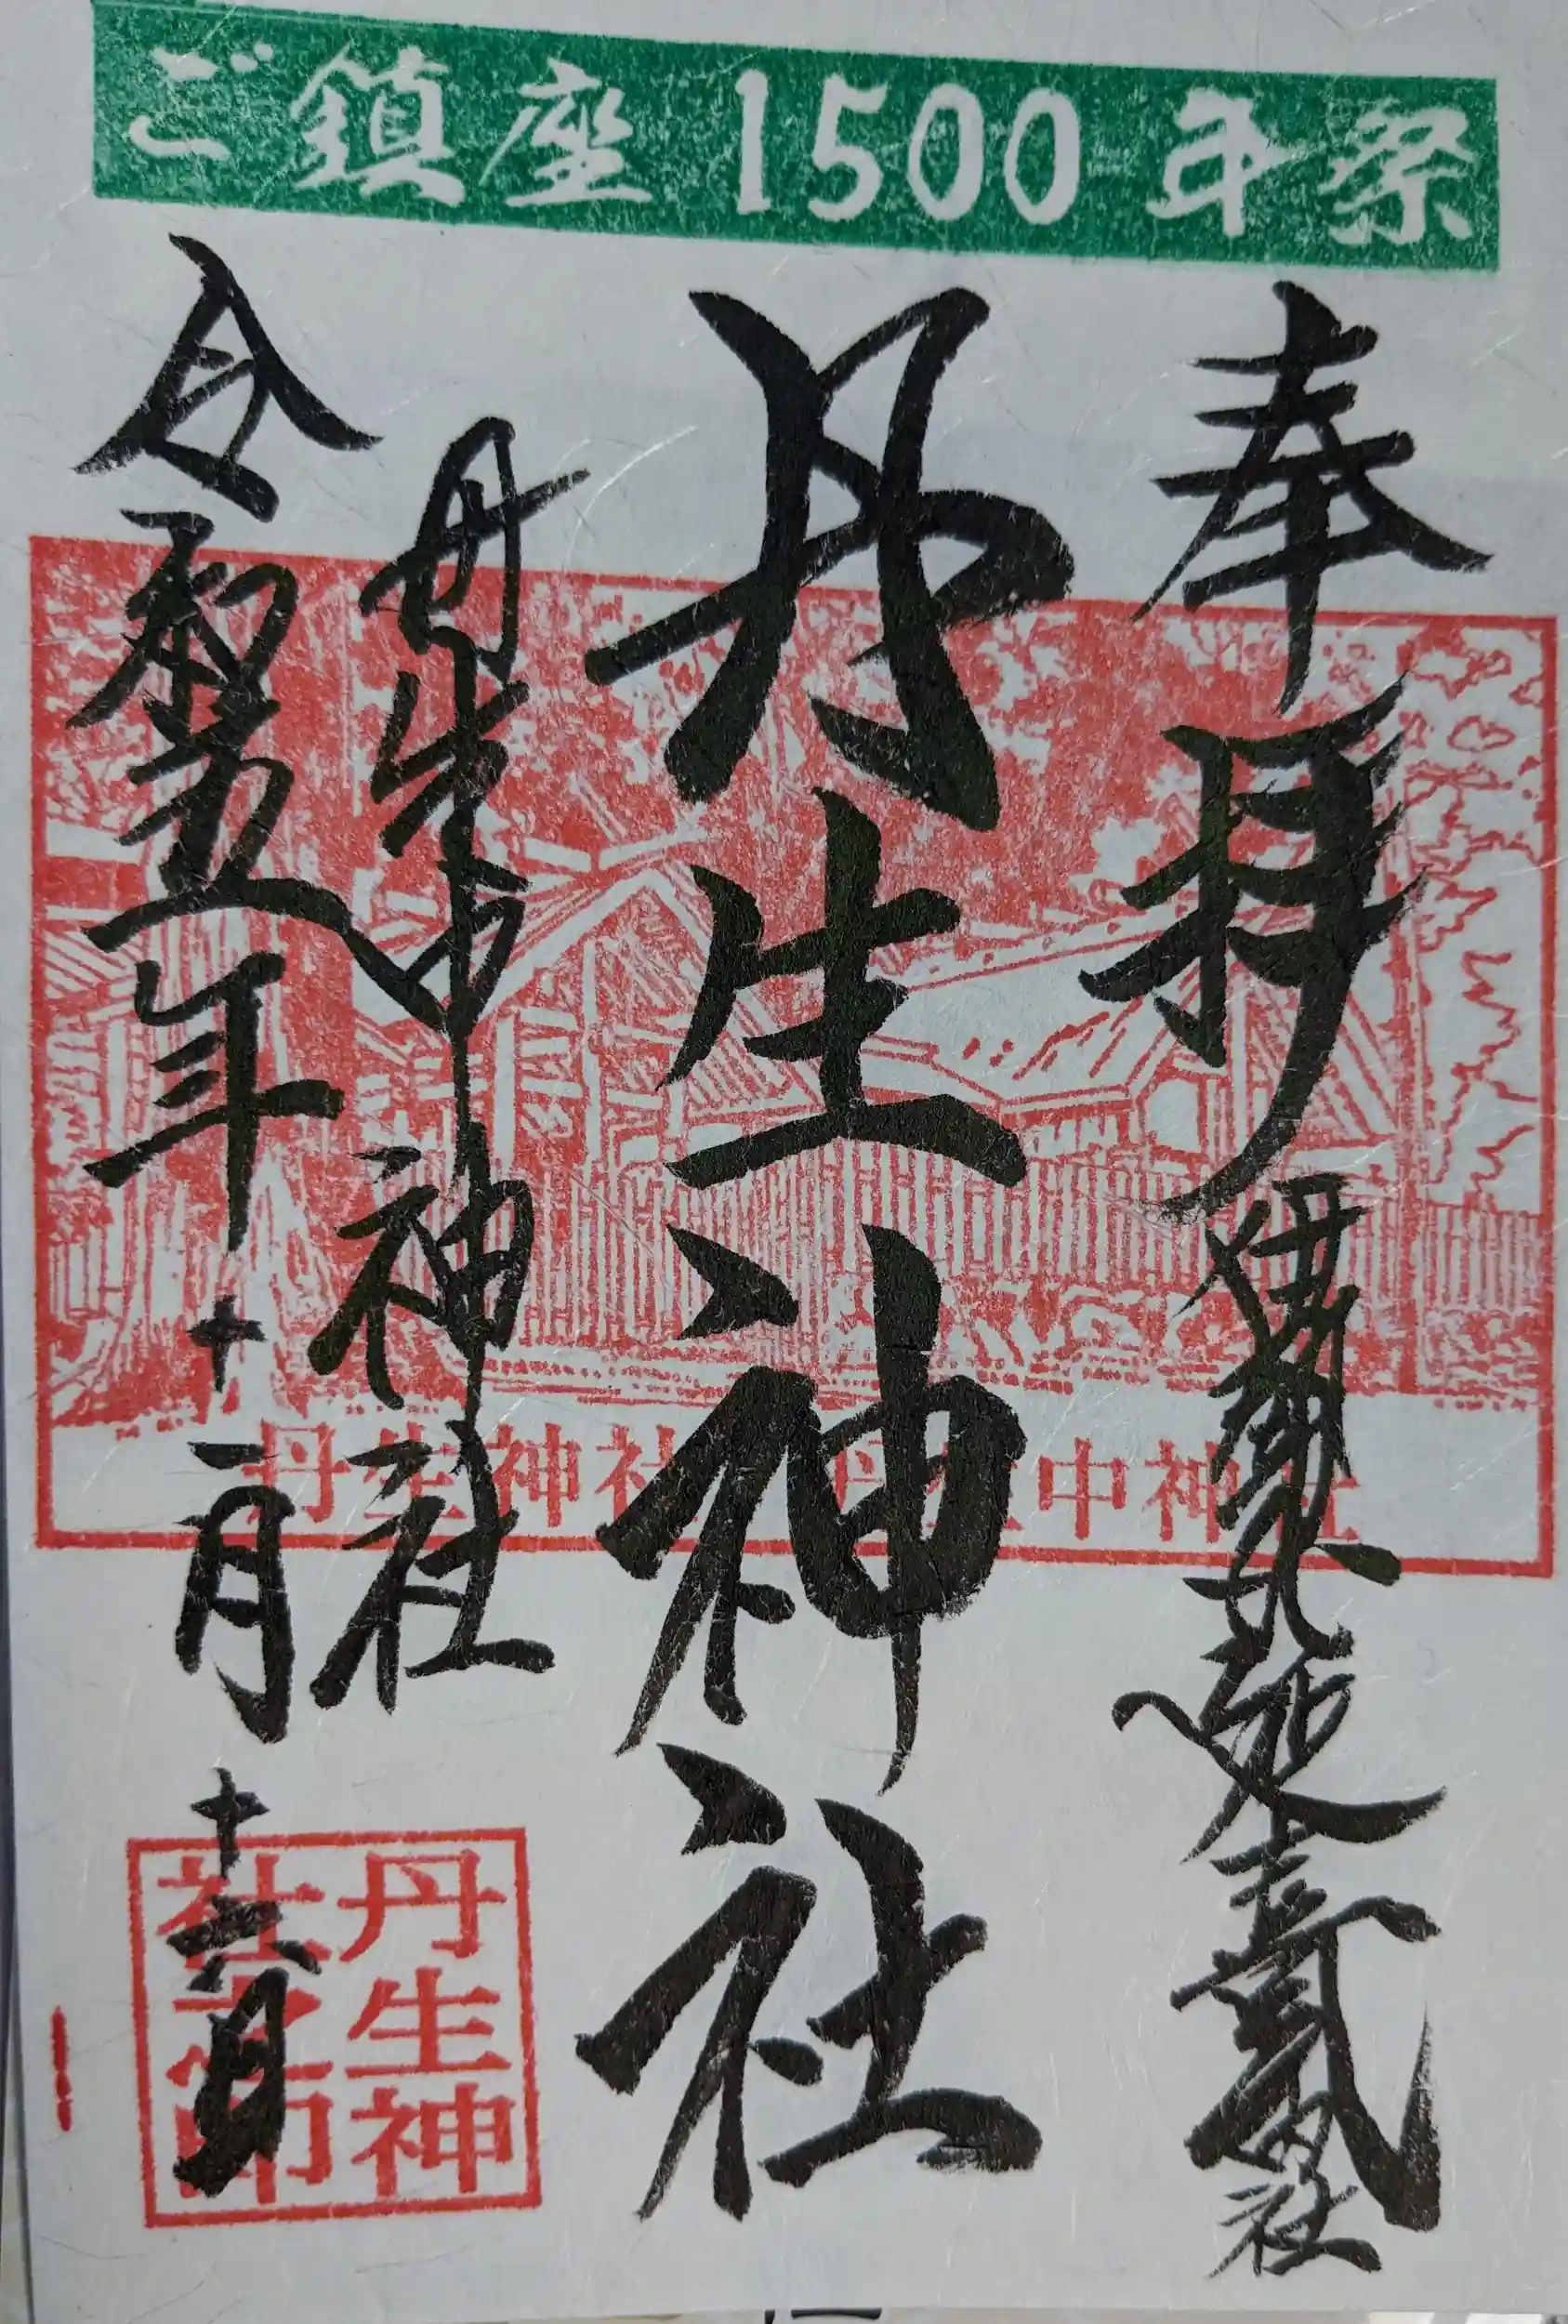 ご鎮座1500年祭
奉拝 伊勢 延喜式内社
丹生神社
丹生中神社
令和五年十一月十六日
丹生神社 丹生中神社
丹生神
社之印